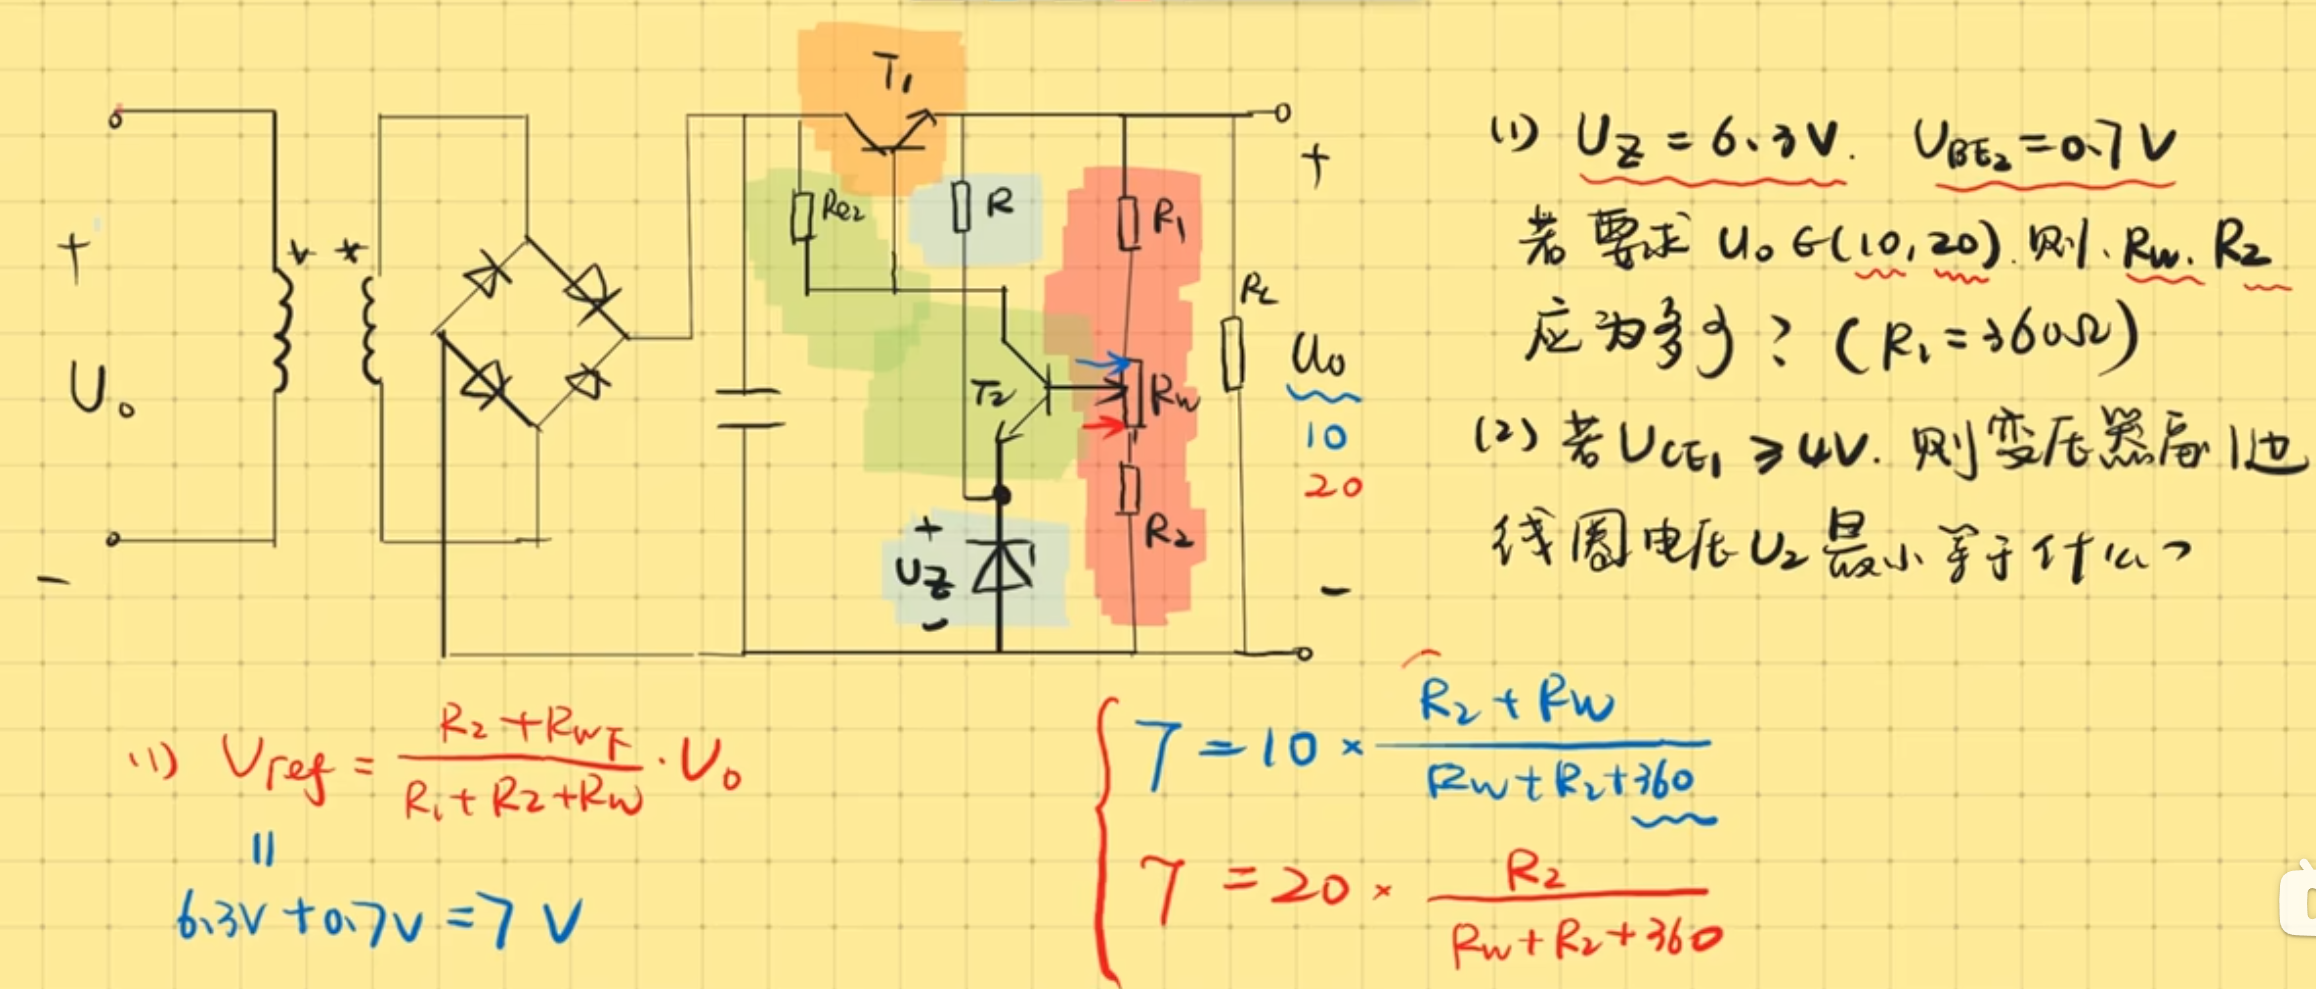 T₁
Rc₂
R
R₁
RL
T₂
Rw
R₂
+
U₀
-
* *
+
U₀
10
20
-
+
Uz
-
(1) Uz = 6.3V. U_BE₂ = 0.7V
若要求 U₀∈(10,20).则.Rw.R₂
应为多少?(R₁=360Ω)
(2) 若U_CE₁ ≥ 4V. 则变压器副边
线圈电压U₂最小等于什么?
(1) Vref = (R₂+Rw下)/(R₁+R₂+Rw) · U₀
||
6.3V+0.7V=7V
7 = 10 × (R₂+Rw)/(Rw+R₂+360)
7 = 20 × R₂/(Rw+R₂+360)